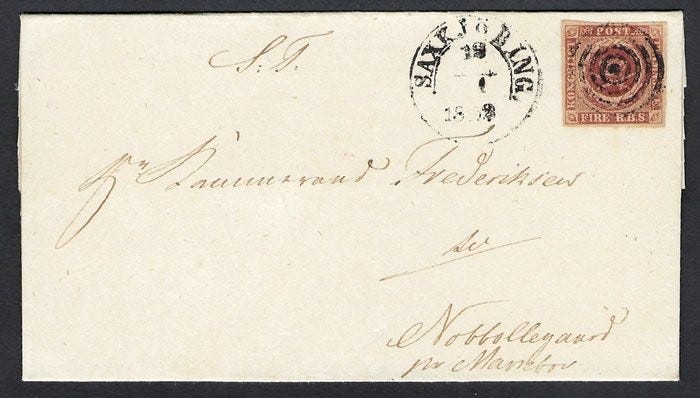 S. T.
SAXKJÖBING.
18
1
KONGELIGT
POST
FIRE R.B.S
Hr Kammerraad Frederiksen
Nobbøllegaard
pr Maribo